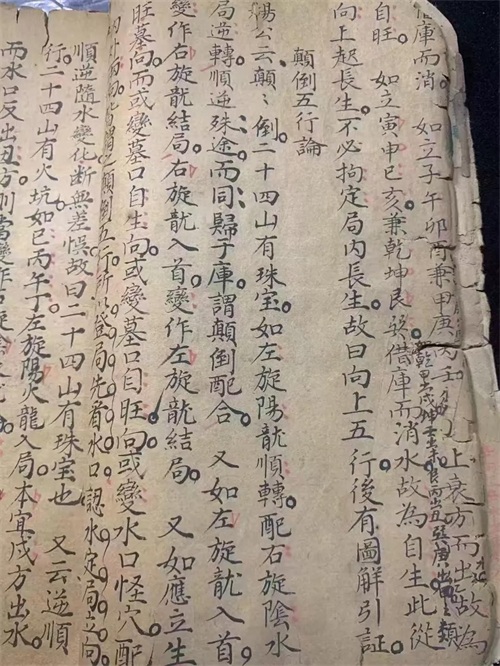 庫而消。如立子午卯酉兼甲庚丙壬上衰方而出。故為
自旺。如立寅申巳亥兼乾坤艮巽借庫而消水故為自生此從
向上起長生。不必拘定局內長生。故曰向上五行後有圖解引証。
顛倒五行論
楊公云顛〻倒。二十四山有珠宝。如左旋陽龍順轉。配右旋陰水
局逆轉。順逆殊途而同歸于庫。謂顛倒配合。又如左旋龍入首。
變作右旋龍結局。右旋龍入首。變作左旋龍結局。又如應立生
旺墓向。而或變墓口自生向。或變墓口自旺向。或變水口怪穴。配
謂之顛倒五行。所以登局先省水口。認水定局立向
順逆隨水變化。斷無差悞。故曰二十四山有珠宝也。又云逆順
行。二十四山有火坑。如巳丙午丁左旋陽火龍入局。本宜戌方出水。
而水口反出丑方。則當變作